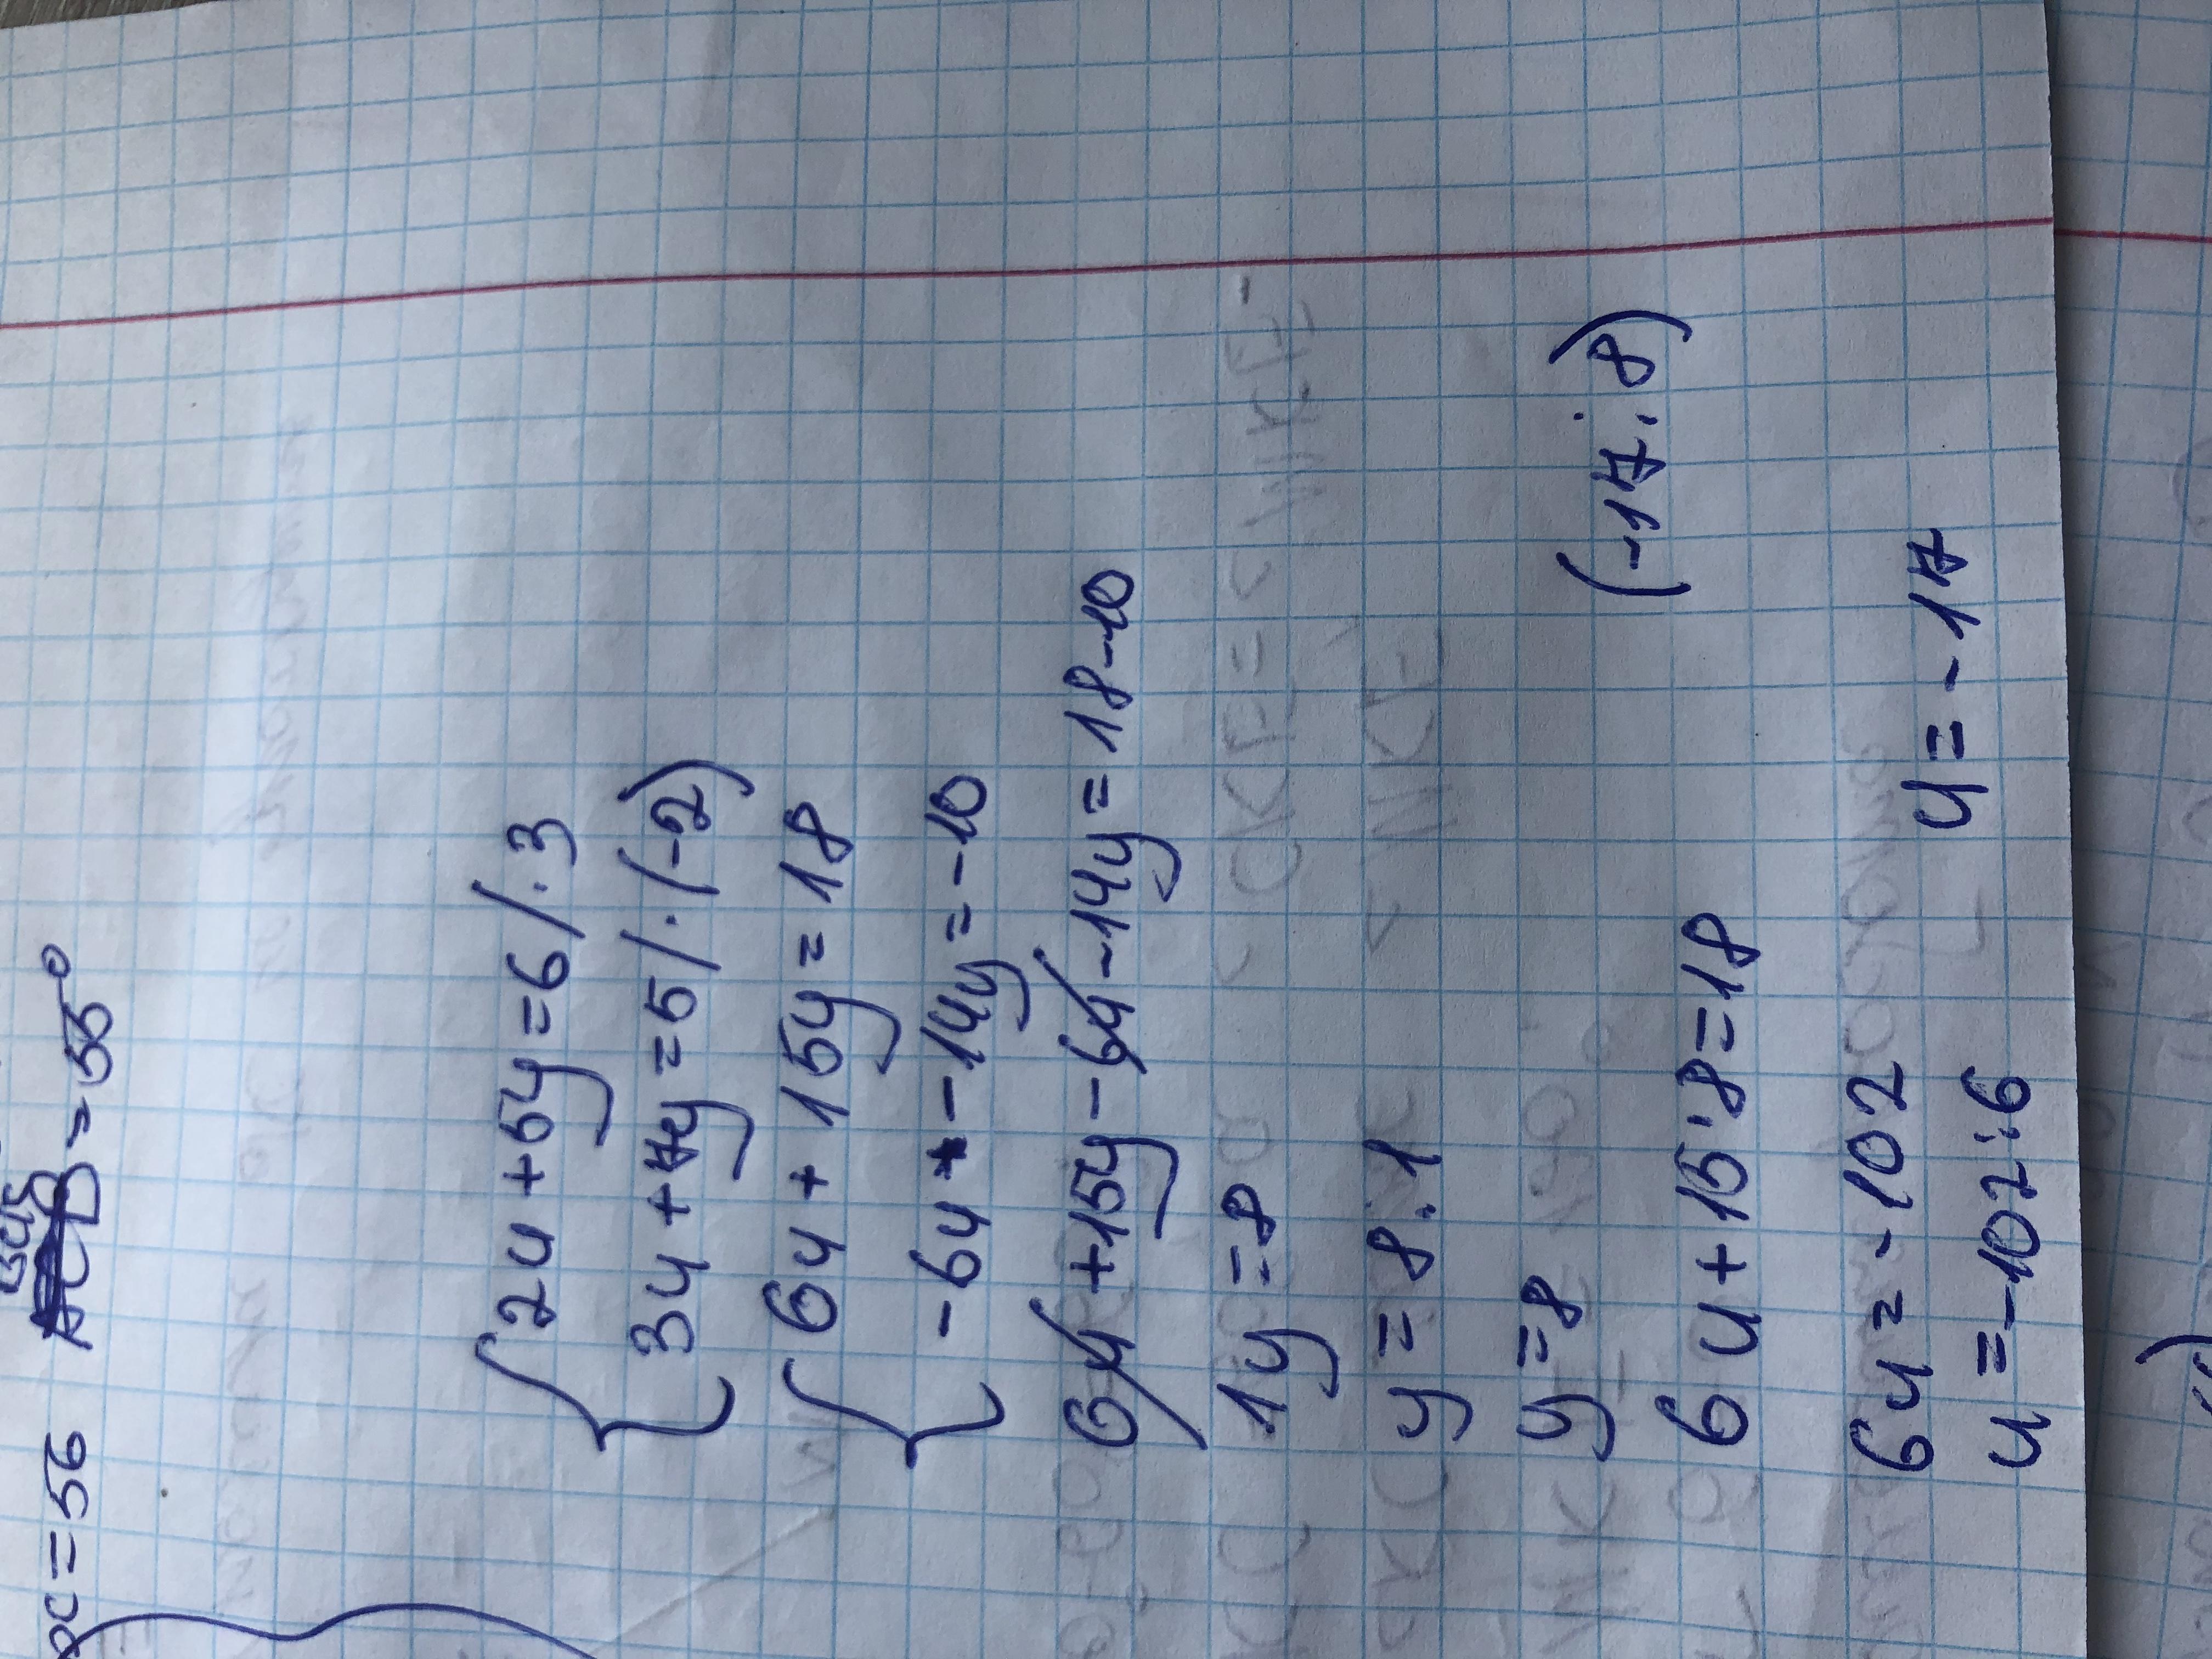 =56 = 55°
{2u + 5y = 6 /·3
3u + 7y = 5 /·(-2)
{6u + 15y = 18
-6u - 14y = -10
6u + 15y - 6u - 14y = 18 - 10
1y = 8
y = 8:1
y = 8
(-17; 8)
6u + 15·8 = 18
6u = -102
u = -102:6
u = -17